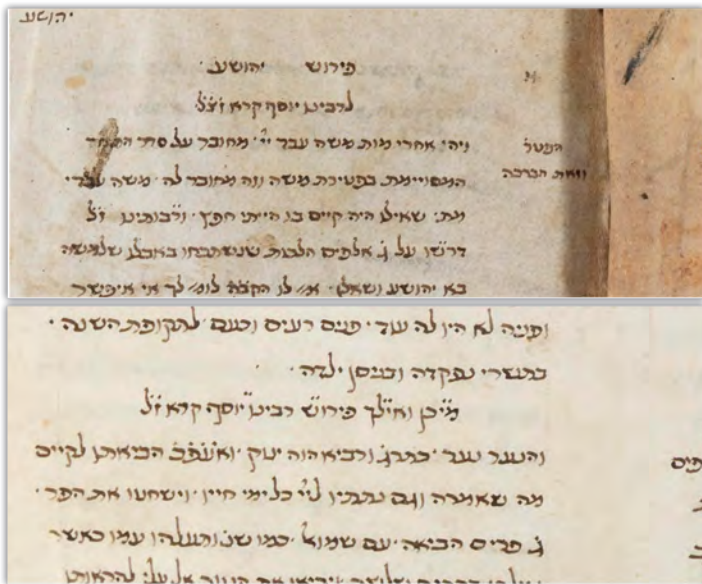 יהושע
פירוש יהושע
לרבינו יוסף קרא זצ״ל
ויהי אחרי מות משה עבד יי׳ מחובר על סדר
הפטר׳
וזאת הברכה
המסויימת בפטירת משה וזה מחובר לה׳ משה עבדי
מת׳ שאילו היה קיים בו הייתי חפץ׳ ורבותינו ז״ל
דרשו על ג׳ אלפים הלכות שנשתכחו באבלו שלמשה
בא יהושע ושאל׳ א״ לו הקב״ה לומ׳ לך אי איפשר
ופניה לא היו לה עוד׳ פנים רעים וכעס׳ לתקופת השנה׳
בתשרי נפקדה ובניסן ילדה׳
מיכן ואילך פירוש רבינו יוסף קרא ז״ל
והנער נער׳ כתרג׳ ורביא הוה יניק׳ הביאתו לקיים
מה שאמרה וגם נתתיו ליי׳ כל ימי חייו׳ וישחטו את הפר׳
ג׳ פרים הביאה׳ עם שמואל׳ כמו שנ׳ ותעלהו עמו כאשר